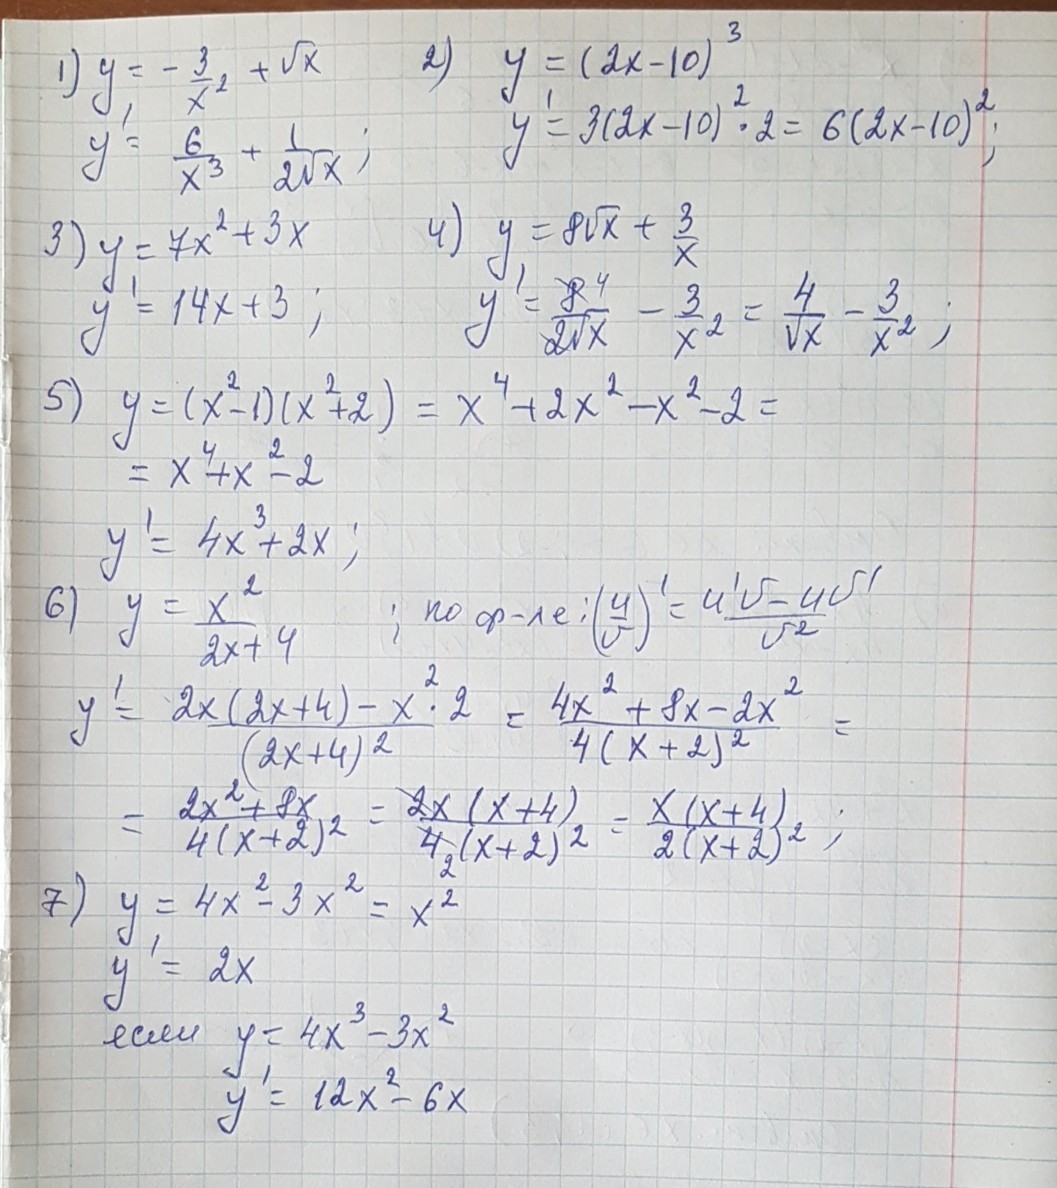 1) y = - 3/x² + √x
y' = 6/x³ + 1/2√x ;
2) y = (2x-10)³
y' = 3(2x-10)²·2 = 6(2x-10)²;
3) y = 7x² + 3x
y' = 14x+3 ;
4) y = 8√x + 3/x
y' = 8 4/2√x - 3/x² = 4/√x - 3/x² ;
5) y = (x²-1)(x²+2) = x⁴+2x²-x²-2 =
= x⁴+x²-2
y' = 4x³+2x ;
6) y = x²/2x+4 ; по ф-ле: (u/v)' = u'v-uv'/v²
y' = 2x(2x+4)-x²·2/(2x+4)² = 4x²+8x-2x²/4(x+2)² =
= 2x²+8x/4(x+2)² = 2x(x+4)/4 2(x+2)² = x(x+4)/2(x+2)² ;
7) y = 4x²-3x² = x²
y' = 2x
если y = 4x³-3x²
y' = 12x²-6x